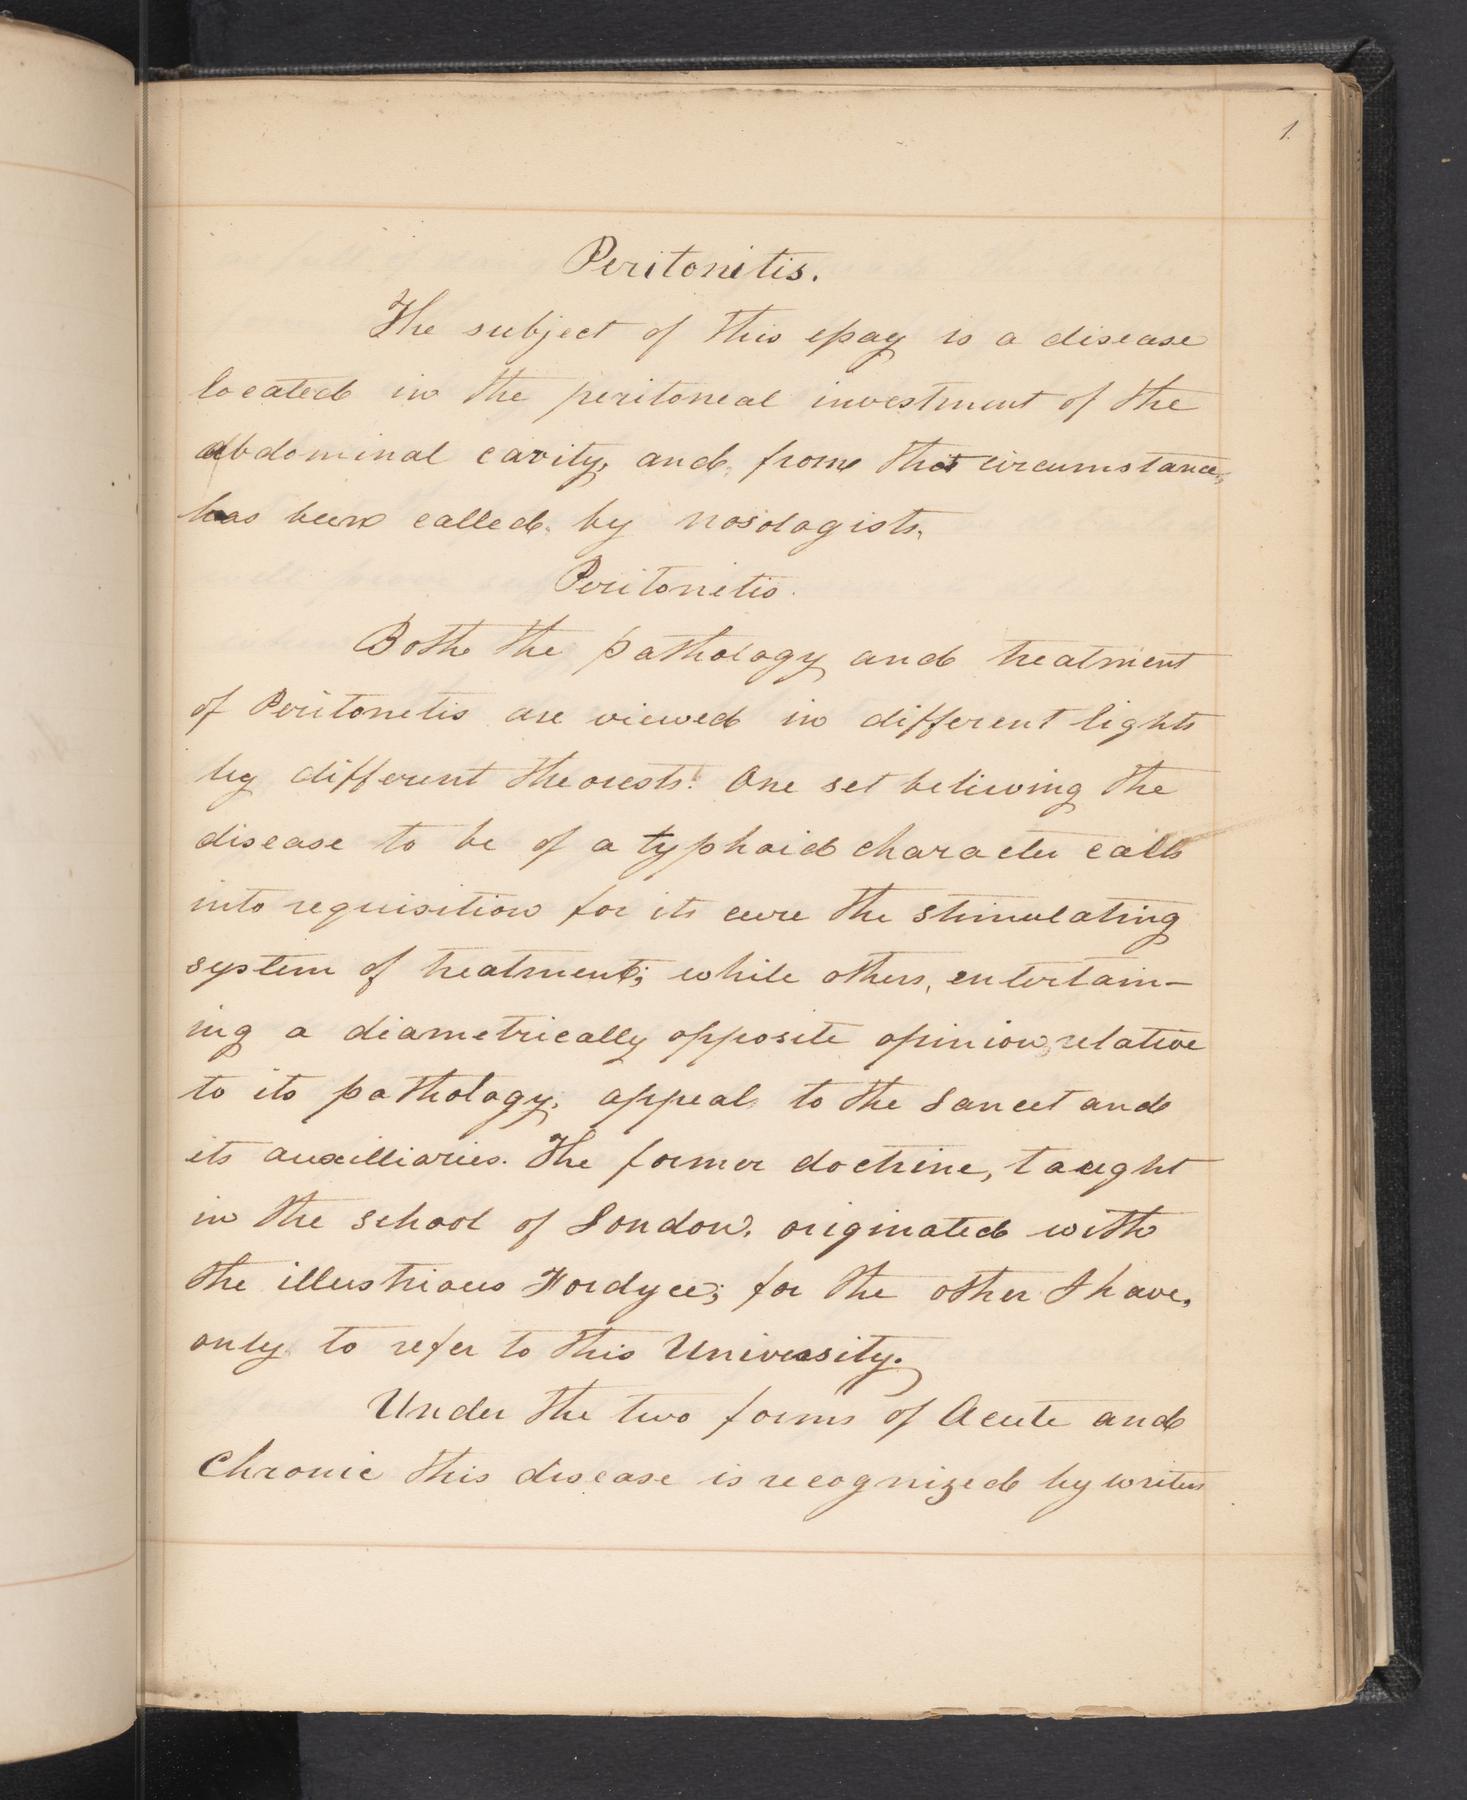 1.
Peritonitis.
The subject of this essay is a disease
located in the peritoneal investment of the
abdominal cavity, and, from this circumstance,
has been called, by nosologists,
Peritonitis.
Both the pathology and treatment
of Peritonitis are viewed in different lights
by different theorests. One set believing the
disease to be of a typhoid character calls
into requisition for its cure the stimulating
system of treatment; while others, entertain-
ing a diametrically opposite opinion, relative
to its pathology, appeal, to the Lancet and
its auxilliaries. The former doctrine, taught
in the school of London, originated with
the illustrious Fordyce; for the other I have,
only to refer to this University.
Under the two forms of Acute and
Chronic this disease is recognized by writers